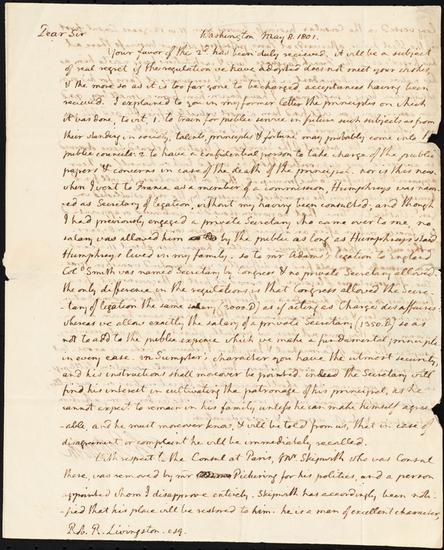 Dear Sir Washington May 8. 1801.
Your favor of the 2d has been duly recieved. it will be a subject
of real regret if the regulation we have adopted does not meet your wishes,
& the more so as it is too far gone to be changed, acceptances having been
recieved. I explained to you in my former letter the principles on which
it was done; to wit, 1. to train for public service in future such subjects as from
their standing in society, talents, principles & fortune may probably come into the
public councils: 2. to have a confidential person to take charge of the public
papers & concerns in case of the death of the principal. nor is this new.
when I went to France as a member of a commission, Humphreys was na-
med as Secretary of legation, without my having been consulted, and though
I had previously engaged a private Secretary who came over to me, no
salary was allowed him by the public as long as Humphreys staid
Humphreys lived in my family. so to mr Adams's legation to England
Colo. Smith was named Secretary by Congress & no private Secretary allowed.
the only difference in the regulations is that Congress allowed the Secre-
tary of legation the same salary (3000. D) as if acting as Chargé des affaires:
whereas we allow exactly the salary of a private Secretary (1350. D) so as
not to add to the public expence which we make a fundamental principle
in every case. in Sumpter's character you have the utmost security,
and his instructions shall moreover be pointed. indeed the Secretary will
find his interest in cultivating the patronage of his principal, as he
cannot expect to remain in his family unless he can make himself agree-
-able, and he must moreover know, & will be told from us, that in case of
disagreement or complaint he will be immediately recalled.
With respect to the Consul at Paris, mr Skipwith who was Consul
there, was removed by mr Pickering for his politics, and a person
appointed whom I disapprove entirely. Skipwith has accordingly been noti-
-fied that his place will be restored to him. he is a man of excellent character
R. R. Livingston. esq.